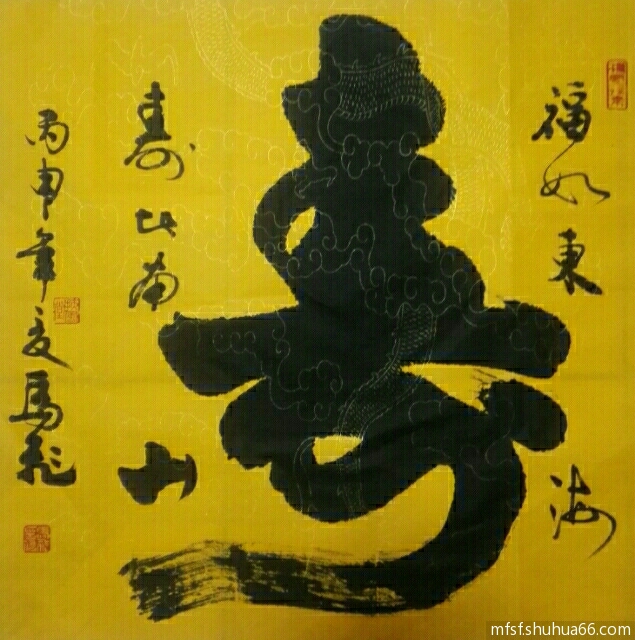 福如東海
寿
寿比南山
丙申年夏馬飛
mfsf.shuhua66.com